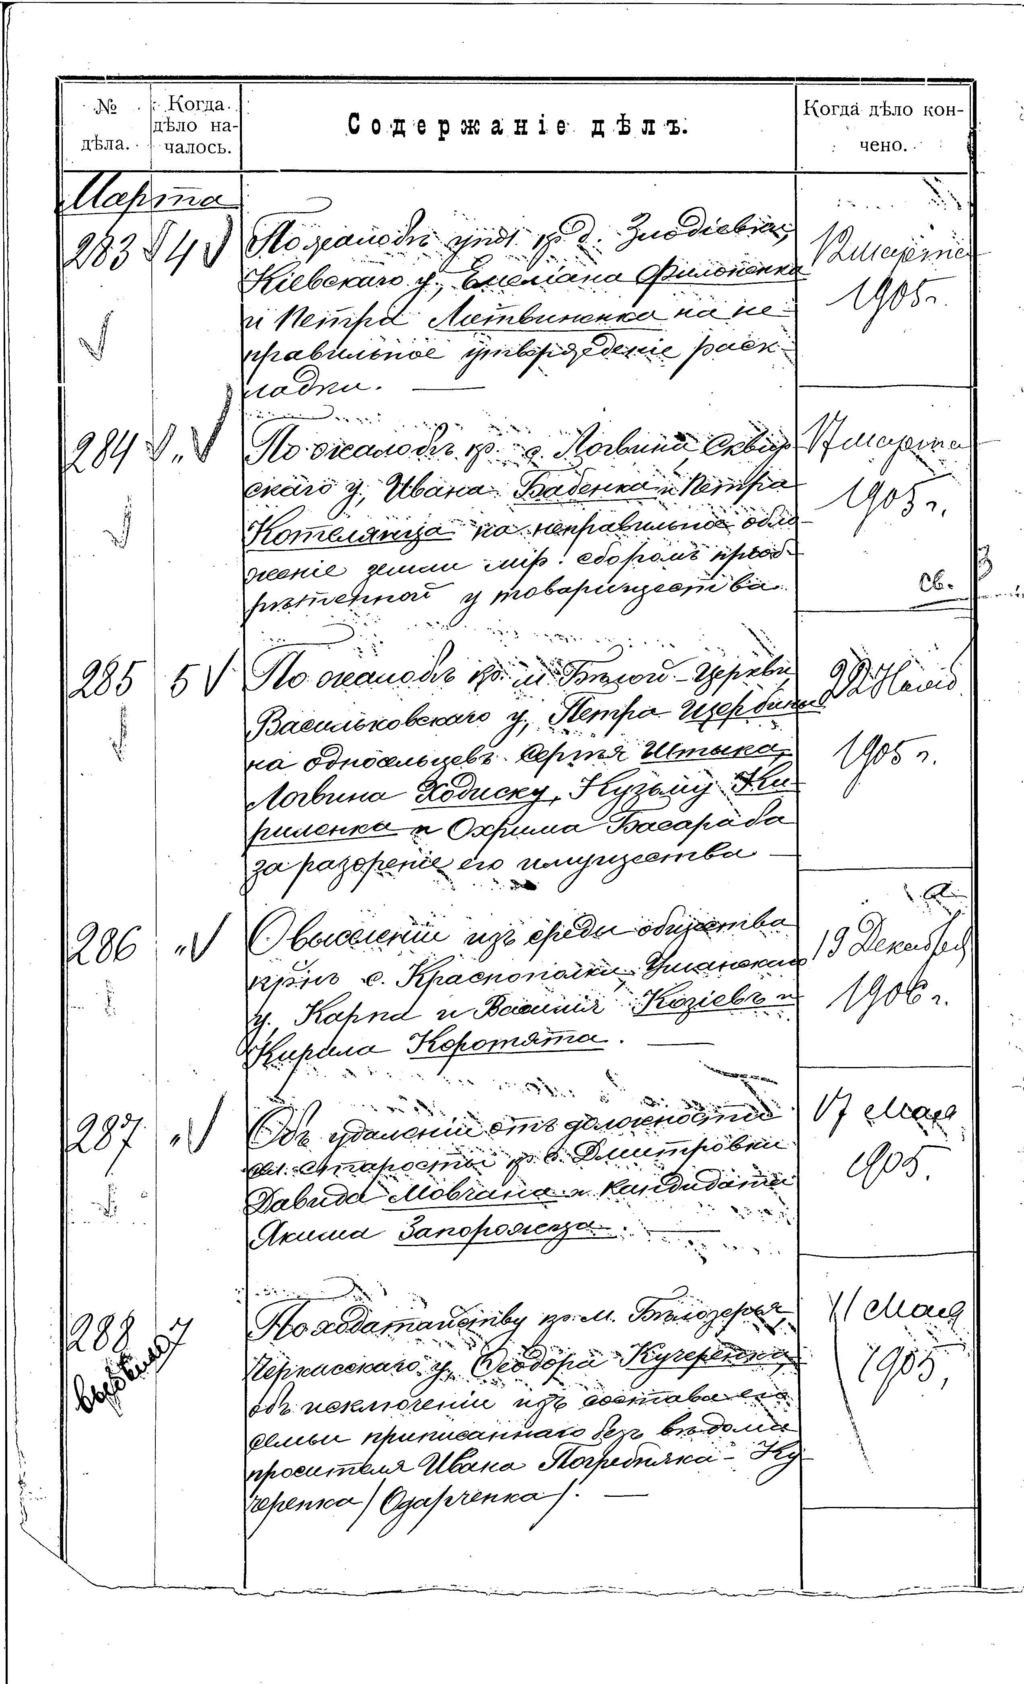 № дѣла.
Когда дѣло началось.
Содержаніе дѣлъ.
Когда дѣло кончено.
Марта
283 4
По жалобѣ упол. кр. д. Злодіевки,
Кіевскаго у., Емеліана Филоненка
и Петра Литвиненка на не-
правильное утвержденіе раск-
ладки.
12 марта
1905 г.
284 "
По жалобѣ кр. с. Логвина Сквир-
скаго у, Ивана Бабенка и Петра
Котелянца на неправильное обло-
женіе земли мір. сборомъ пріоб-
рѣтенной у товарищества.
17 марта
1905 г.
св. 3
285 5
По жалобѣ кр. м. Бѣлой-Церкви,
Васильковскаго у, Петра Щербины
на односельцевъ Сергѣя Штыка,
Логвина Ходиску, Кузьму Ки-
риленка и Охрима Басараба
за разореніе его имущества
22
1905 г.
286 "
О выселеніи изъ среды общества
крнъ с. Краснополки, Уманскаго
у., Карпа и Василія Козіевъ и
Кирила Коротята.
19 Декабря
1906 г.
287 "
Объ удаленіи отъ должности
сел. старосты кр. с. Дмитровки
Давида Мовчана и кандидата
Якима Запорожца.
17 Мая
1905.
288 7
выбыла
По ходатайству кр. м. Бѣлозерья,
Черкасскаго у, Ѳеодора Кучеренка,
объ исключеніи изъ состава его
семьи приписаннаго безъ вѣдома
просителя Ивана Погребняка-Ку-
черенка /Одарченка/.
11 Мая
1905,